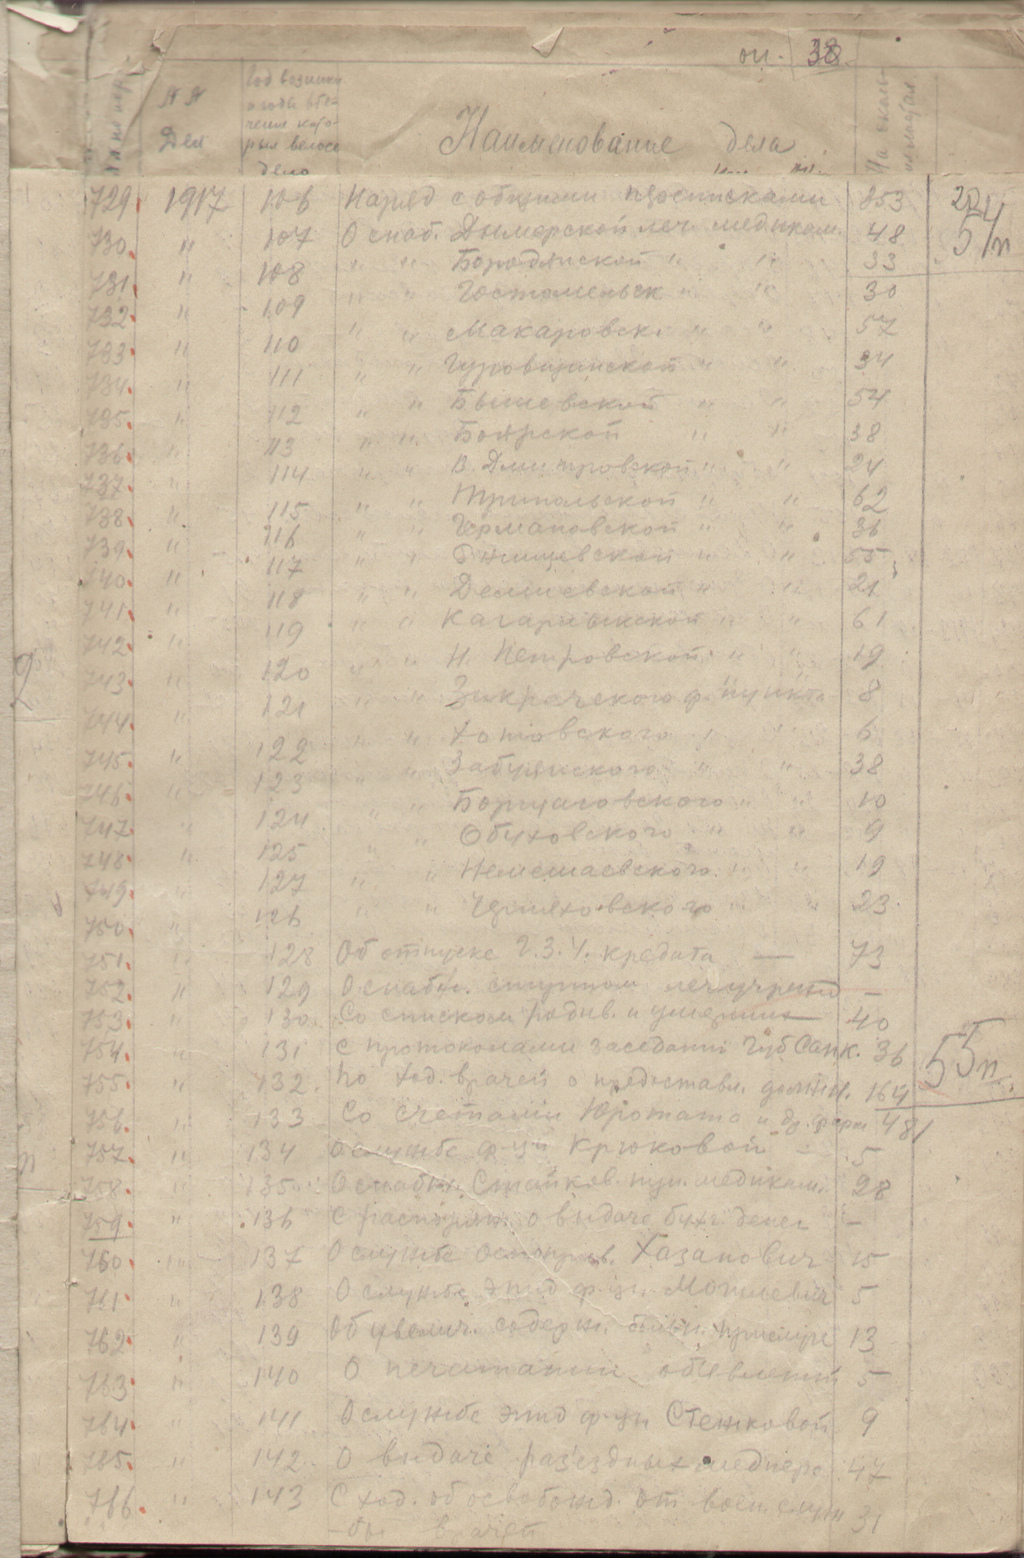 оп. 38
№№ Дел
Наименование дела
729. 1917 106 Наряд с общими преписками 353
730. " 107 О снаб. Дымерской леч. медикам. 48
731. " 108 " " Бородянской " " 33
732. " 109 " " Гостомельск " " 30
733. " 110 " " Макаровск. " " 57
734. " 111 " " " " 34
735. " 112 " " Бышевской " " 54
736. " 113 " " Боярской " " 38
737. " 114 " " В. Дмитровской " " 24
738. " 115 " " Трипольской " " 62
739. " 116 " " Германовской " " 36
740. " 117 " " Ржищевской " " 55
741. " 118 " " Демиевской " " 21
742. " 119 " " Кагарлыкской " " 61
743. " 120 " " Н. Петровской " " 19
744. " 121 " " ф. пункта 8
745. " 122 " " Хотовского " " 6
746. " 123 " " Забуянского " " 38
747. " 124 " " Борщаговского " " 10
748. " 125 " " Обуховского " " 9
749. " 127 " " Немешаевского " " 19
750. " 126 " " Черняховского " " 23
751. " 128 Об отпуске Г.З.У. кредита — 73
752. " 129 О снабж. спиртом лечучрежд —
753. " 130 Со списком родив. и умерших 40
754. " 131 С протоколами заседаний Губ Санк. 36
55п.
755. " 132. По ход. врачей о предоставл. должн. 164
756. " 133 Со счетами Юротата и др. фарм 481
757. " 134 О службе ф-цы Крюковой 5
758. " 135 О снабж. пун. медикам. 28
759. " 136 С распоряж. о выдаче бухг. денег —
760. " 137 О службе оспопрев. Хазанович 15
761. " 138 О службе эпид ф-цы. 5
762. " 139 Об увелич. содерж. 13
763. " 140 О печатании обявлений 5
764. " 141 О службе эпид ф-цы Стешковой 9
765. " 142 О выдаче раз'ездных медперс. 47
766. " 143 С ход. об освобожд. от воен. служ 31
-бы врачей